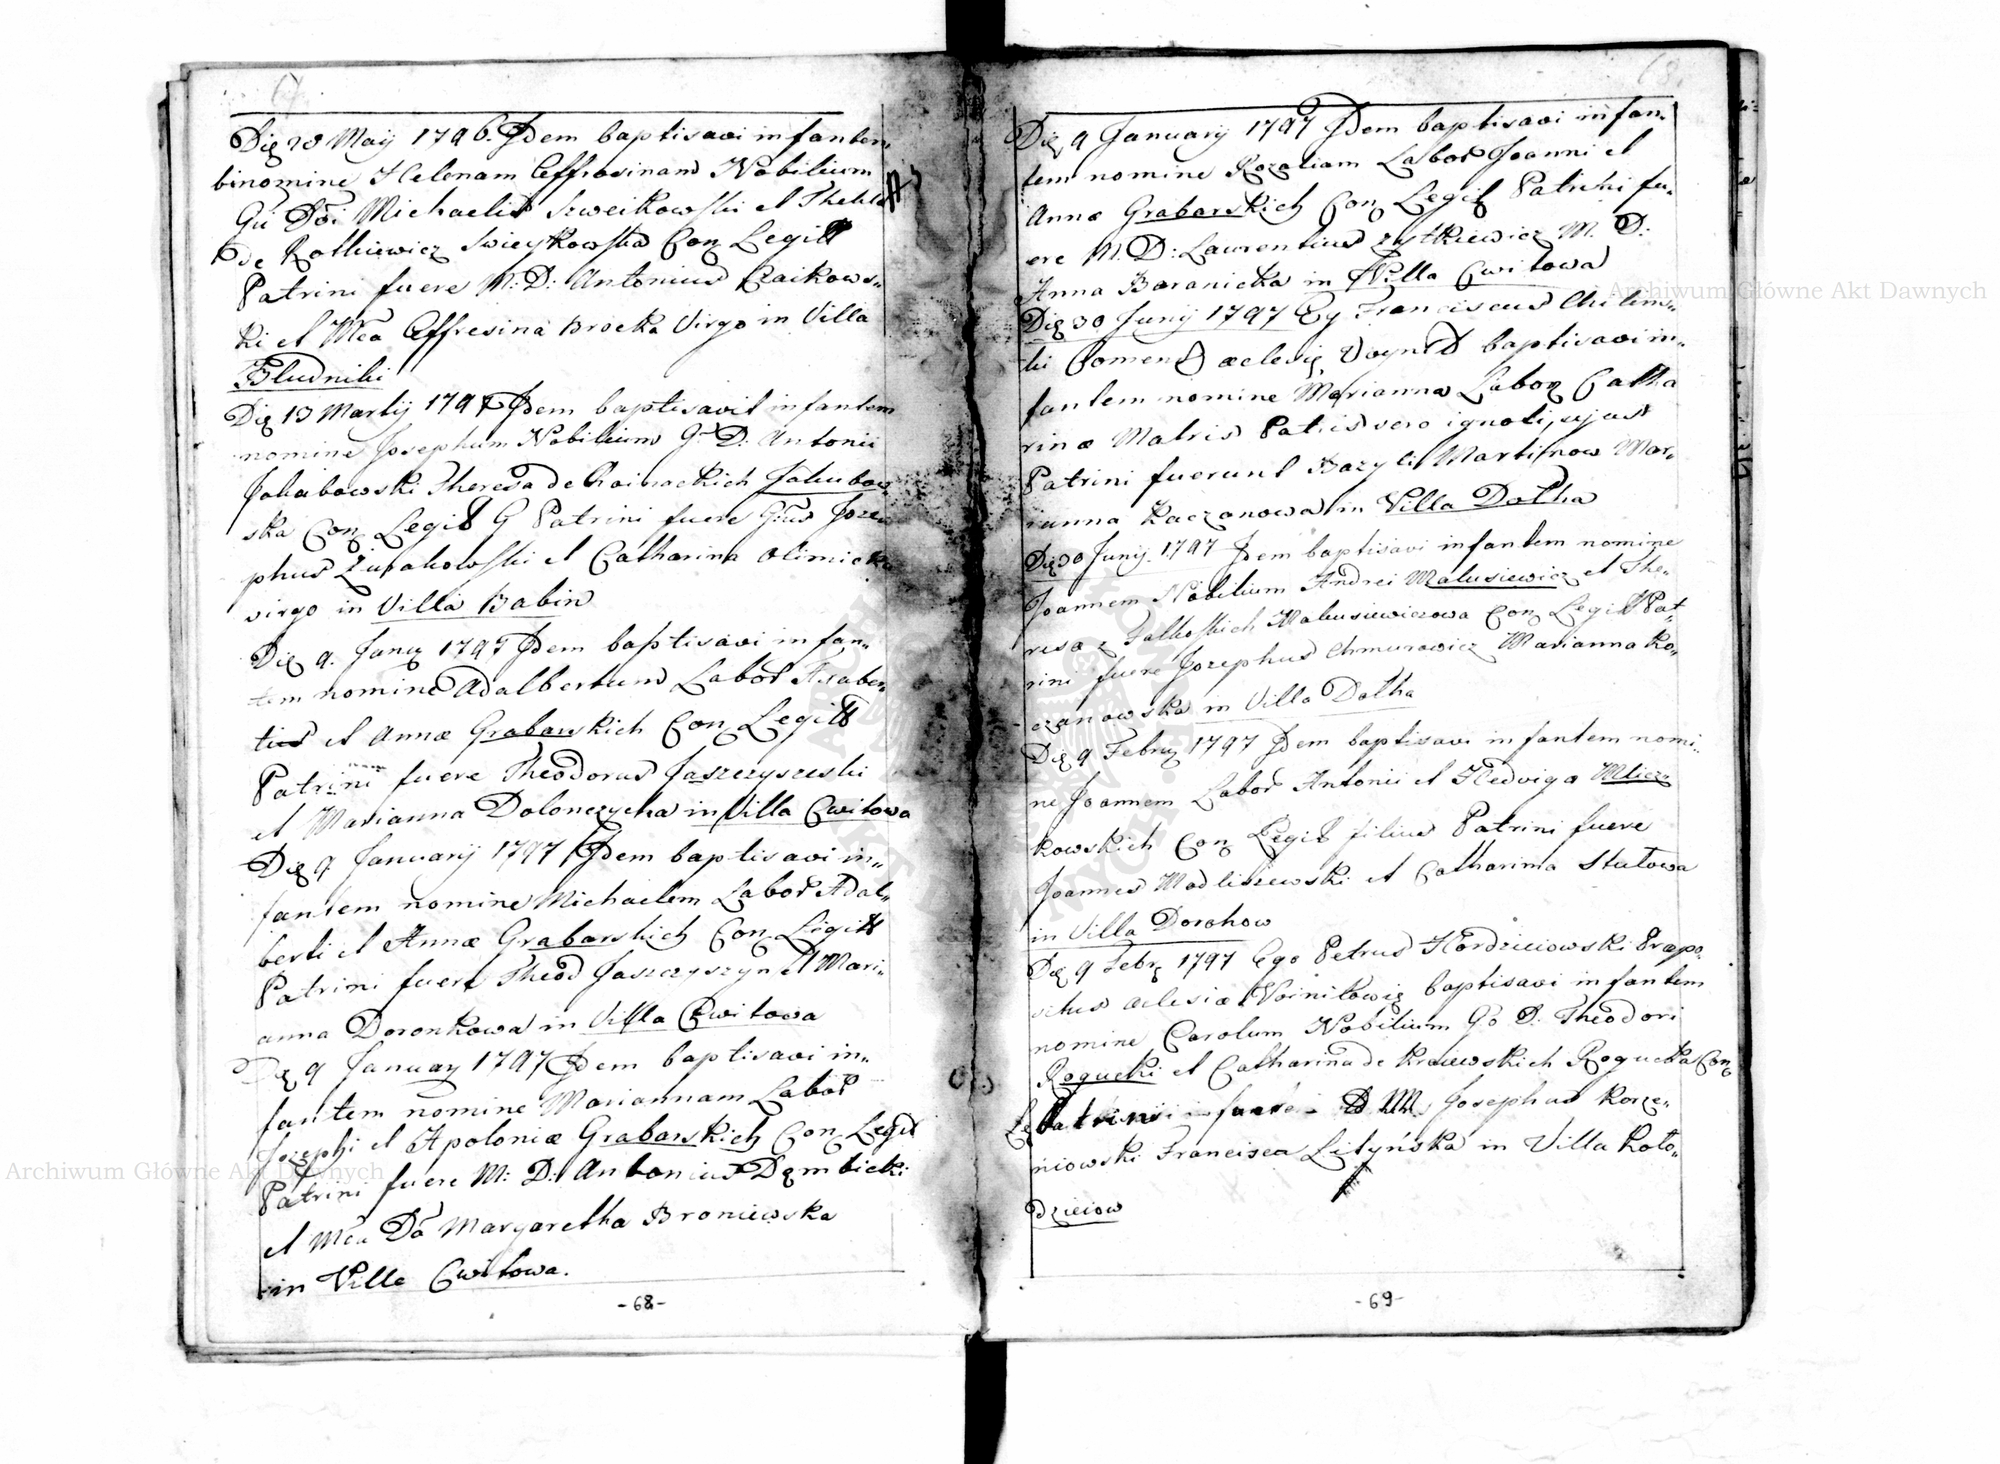 67
Die 28 Maij 1796. Idem baptisavi infantem
binomine Helenam Effrosinam Nobilium
Gū Dōi Michaelis Szweikowski et Thekla
de Rotkiewicz Swieykowska Con Legitt
Patrini fuere M: D: Antonius Czaikows-
ki et Mca Effresina Brocka Virgo in Villa
Bludniki
Die 13 Martij 1797 Idem baptisavit infantem
nomine Josephum Nobilium G: D: Antonii
Jakubowski Theresa de Choinackich Jakubow
ska Con Legit G Patrini fuere Joze
phus Żurakowski et Catharina Olimicka
virgo in Villa Babin
Die 9. Janij 1797 Idem baptisavi infan-
tem nomine Adalbertum Labor
tius et Annæ Grabarskich Con Legitt
Patrini fuere Theodorus Jaszczyszeski
et Marianna Dolonczycha in Villa Cwitowa
Die 9 Januarij 1797 Idem baptisavi in-
fantem nomine Michaelem Labor Adal-
berti et Annæ Grabarskich Con Legitt
Patrini fuere Theod Jaszczyszyn et Mari-
anna Doronkowa in Villa Cwitowa
Die 9 January 1797 Idem baptisavi in-
fantem nomine Mariannam Labor
Jozephi et Apoloniæ Grabarskich Con Legit
Patrini fuere M: D: Antonius Dembicki
et Mca Dā Margaretha Broniewska
in Ville Cwitowa.
-68-
68
Die 9 Januarij 1797 Idem baptisavi infan-
tem nomine Rozaliam Labor Joanni et
Annæ Grabarskich Con Legit Patrini fu-
ere M. D: Laurentius Zytkiewicz M. D:
Anna Baranicka in Villa Cwitowa
Die 30 Junij 1797 Eg Franciscus Chilins-
ki Comend æclesiæ Voynil baptisavi in-
fantem nomine Marianna Labor Catha
rinæ Matris Patris vero ignoti, cujus
Patrini fuerunt Bazyli Martinow Mar-
ianna Kaczanowa in Villa Dołha
Die 30 Junij. 1797 Idem baptisavi infantem nomine
Joannem Nobilium Andrei Matusiewicz et The-
resa z Falkoskich Matusiewiczowa Con Legitt Pat-
rini fuere Jozephus Chmurowicz Marianna Ko-
czanowska in Villa Dołha
Die 9 Febrij 1797 Idem baptisavi infantem nomi-
ne Joannem Labor Antonii et Hedviga Mlicz
kowskich Con Legit filius Patrini fuere
Joannes Modliszewski et Catharina Stułowa
in Villa Dorohow
Die 9 Febr 1797 Ego Petrus Hordziiowski Præpo-
situs æclesiæ Woinilowiæ baptisavi infantem
nomine Carolum Nobilium Go D: Theodori
Rogucki et Catharina de Krauwskich Rogucka Con
Le Patrini D M. Josephus Korze-
niowski Francisca Lityńska in Villa Koło-
dzieiow
-69-
Archiwum Główne Akt Dawnych
Archiwum Główne Akt Dawnych